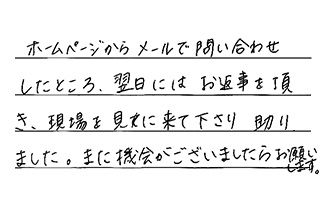 ホームページからメールで問い合わせ
したところ、翌日には お返事を頂
き、現場を見に来て下さり 助り
ました。また機会がございましたらお願い
します。